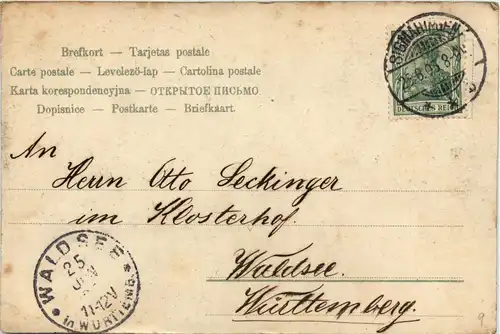 Brefkort — Tarjetas postale
Carte postale — Levelező-lap — Cartolina postale
Karta korespondencyjna — ОТКРЫТОЕ ПИСЬМО
Dopisnice — Postkarte — Briefkaart.
DEUTSCHES REICH
An
Herrn Otto Seckinger
im Klosterhof.
Waldsee.
Württemberg.
WALDSEE
25
JUN
11-12V
in WÜRTTEMB.